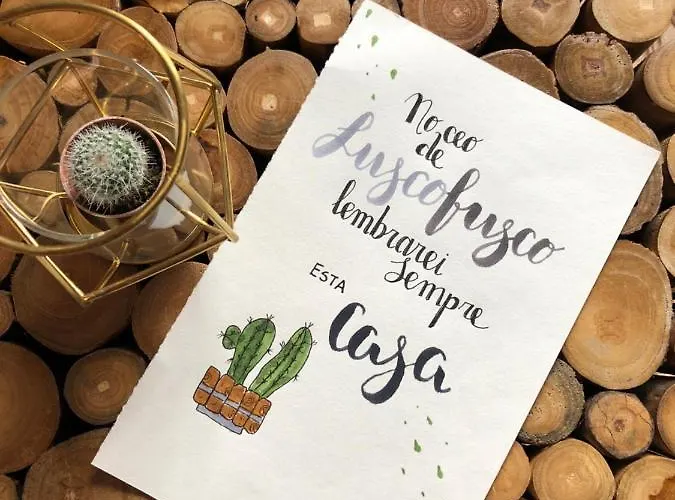 No ceo
de
Luscofusco
lembrarei
sempre
ESTA
Casa